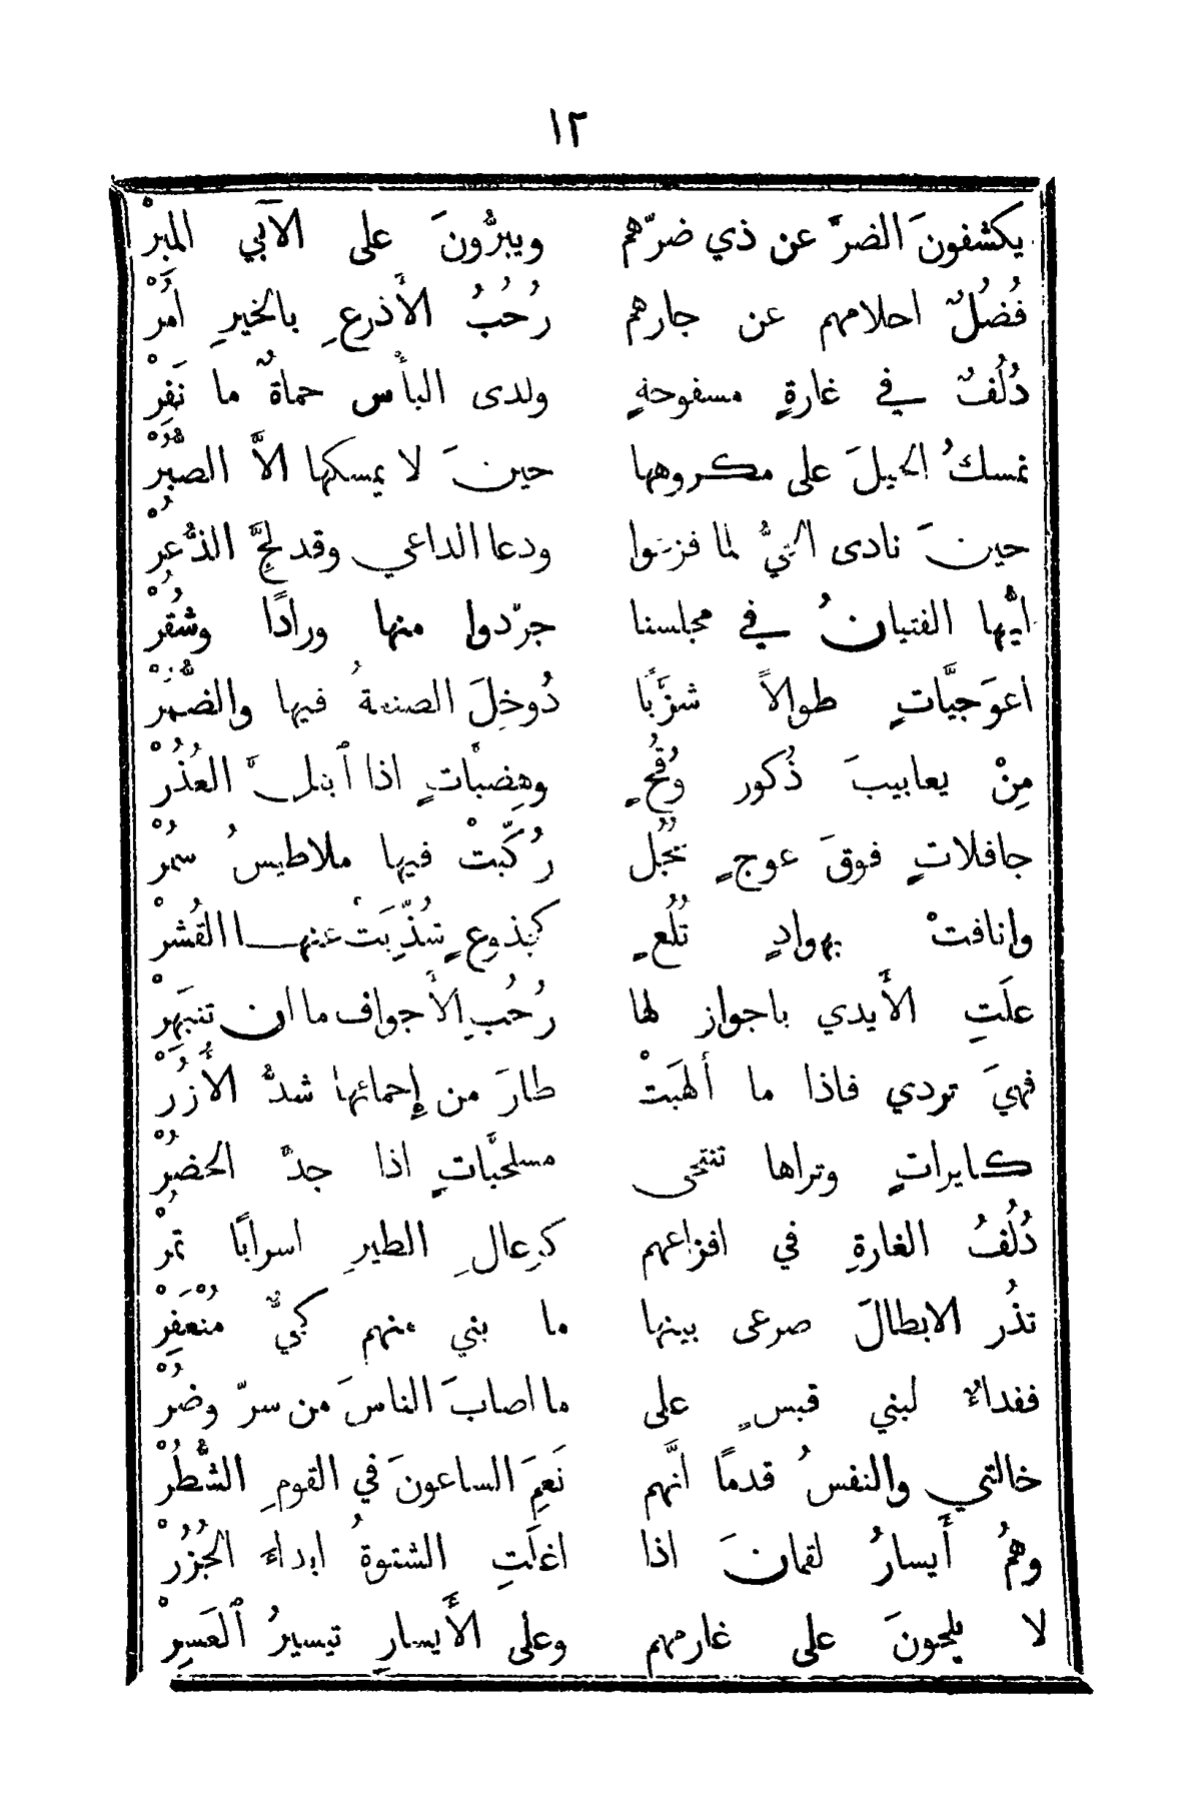 ١٢
يكشفونَ الضرَّ عن ذي ضرّهم ويبرُّونَ على الآبي المبرْ
فُضُلٌ احلامهم عن جارهم رُحُبُ الأَذرعِ بالخيرِ أَمَرْ
دُلُفٌ في غارةٍ مسفوحةٍ ولدى البأْس حماةٌ ما نَفِرْ
نمسكُ الخيلَ على مكروهها حينَ لا يمسكها الاَّ الصُبُرْ
حينَ نادى الحيُّ لما فزعوا ودعا الداعي وقد لجَّ الذُّعُرْ
ايُّها الفتيانُ في مجلسنا جرّدوا منها ورادًا وشُقُرْ
اعوَجيَّاتٍ طوالاً شزَّبًا دُوخِلَ الصنعةُ فيها والضُّمُرْ
مِنْ يعابيبَ ذُكور وُقُحٍ وهِضبَّاتٍ اذا ٱبتلَّ العُذُرْ
جافلاتٍ فوقَ عوجٍ عُجُل رُكّبَتْ فيها ملاطيسُ سمُرْ
وانافتْ بهوادٍ تُلُعٍ كجذوعٍ شُذِّبَتْ عنها القُشُرْ
علَتِ الأَيدي باجواز لها رُحُبِ الأَجواف ما ان تنبَهِرْ
فهيَ تردي فاذا ما أَلهَبَتْ طارَ من إِحمائها شدُّ الأُزُرْ
كايراتٍ وتراها تنتحى مسلحبَّاتٍ اذا جدَّ الحضُرْ
دُلُفُ الغارةِ في افزاعهم كرِعالِ الطيرِ اسرابًا تمُرْ
تذُر الابطالَ صرعى بينها ما بني منهم كميٌّ مُنْعَفِرْ
ففداءٌ لبني قيسٍ على ما اصابَ الناسَ من سرّ وضُرْ
خالتي والنفسُ قدمًا أنَّهم نَعِمَ الساعونَ في القومِ الشُّطُرْ
وهُمُ أَيسارُ لقمانَ اذا اغلَتِ الشتوةُ ابداءَ الجُزُرْ
لا يلحونَ على غارمهم وعلى الأَيسارِ تيسيرُ ٱلعَسِرْ